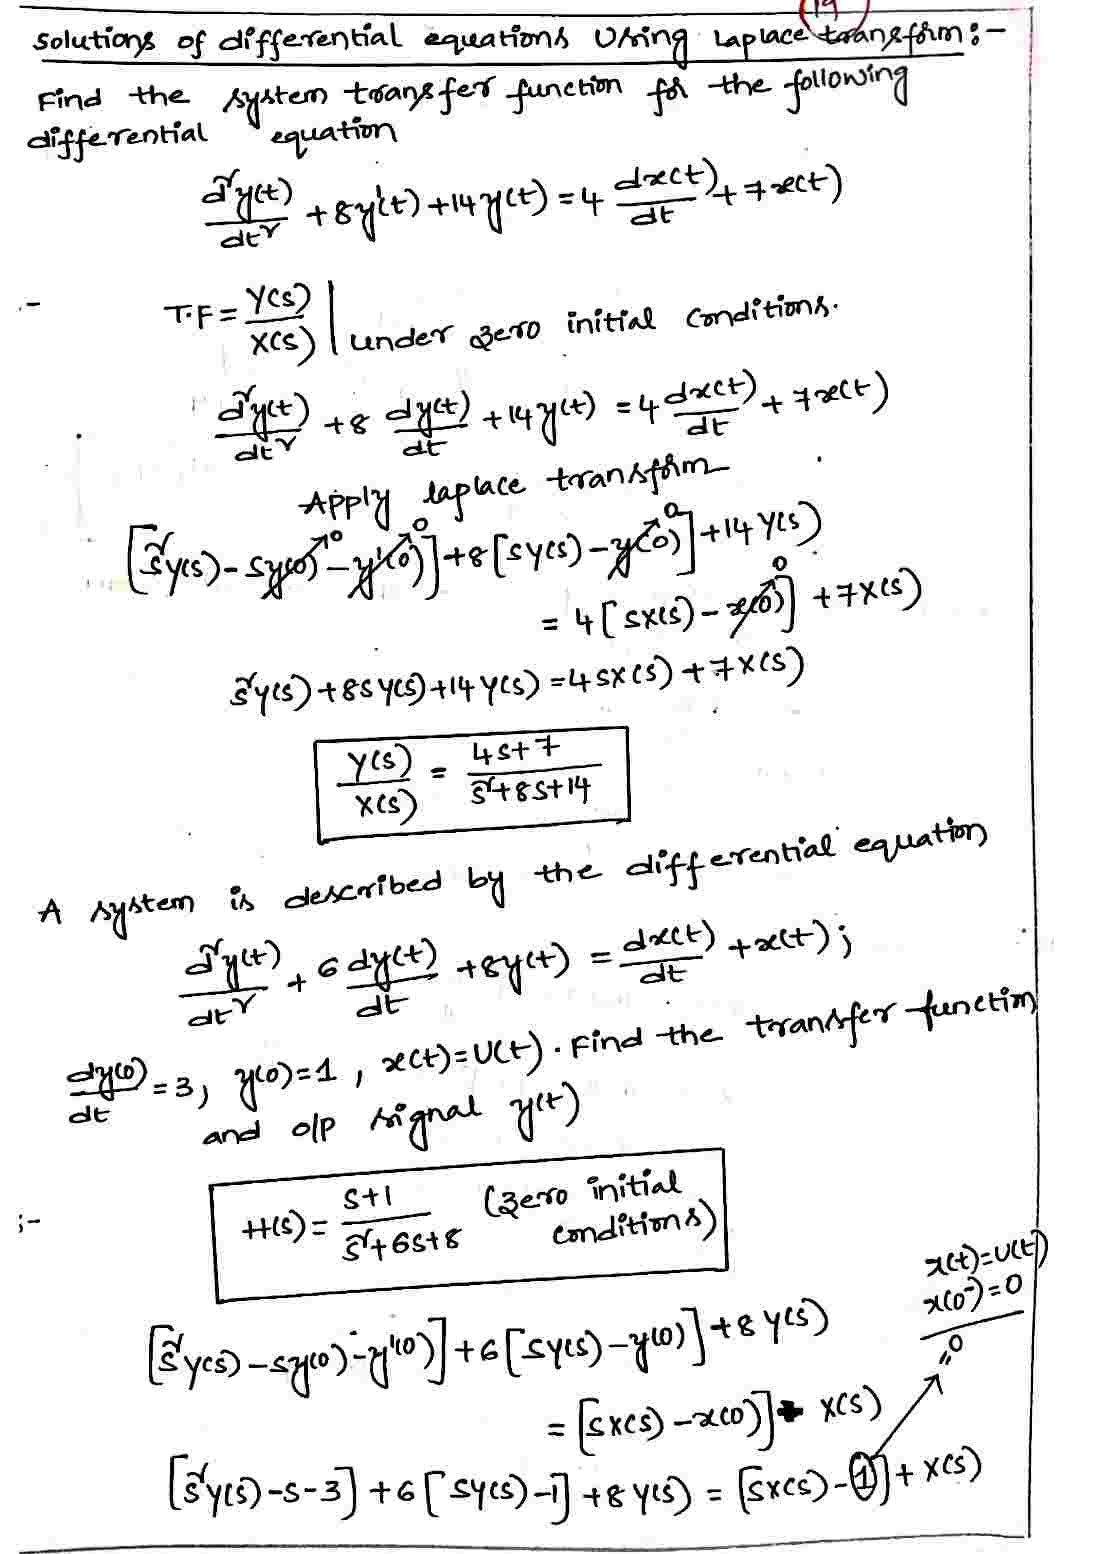 19
Solutions of differential equations Using Laplace transform:-
Find the system transfer function for the following
differential equation
d²y(t)/dt² + 8y'(t) + 14y(t) = 4 dx(t)/dt + 7x(t)
:-
T.F = Y(s)/X(s) | under zero initial conditions.
d²y(t)/dt² + 8 dy(t)/dt + 14y(t) = 4 dx(t)/dt + 7x(t)
Apply laplace transform
[s²Y(s) - sy(0)→0 - y'(0)→0] + 8[sY(s) - y(0)→0] + 14Y(s)
= 4[sX(s) - x(0)→0] + 7X(s)
s²Y(s) + 8sY(s) + 14Y(s) = 4sX(s) + 7X(s)
Y(s)/X(s) = 4s+7/s²+8s+14
A system is described by the differential equation
d²y(t)/dt² + 6 dy(t)/dt + 8y(t) = dx(t)/dt + x(t);
dy(0)/dt = 3, y(0)=1, x(t)=U(t). Find the transfer function
and o/p signal y(t)
:-
H(s) = s+1/s²+6s+8 (zero initial
conditions)
x(t)=U(t)
x(0⁻)=0
[s²Y(s) - sy(0) - y'(0)] + 6[sY(s) - y(0)] + 8Y(s)
"0
= [sX(s) - x(0)] + X(s)
[s²Y(s) - s - 3] + 6[sY(s) - 1] + 8Y(s) = [sX(s) - 1] + X(s)